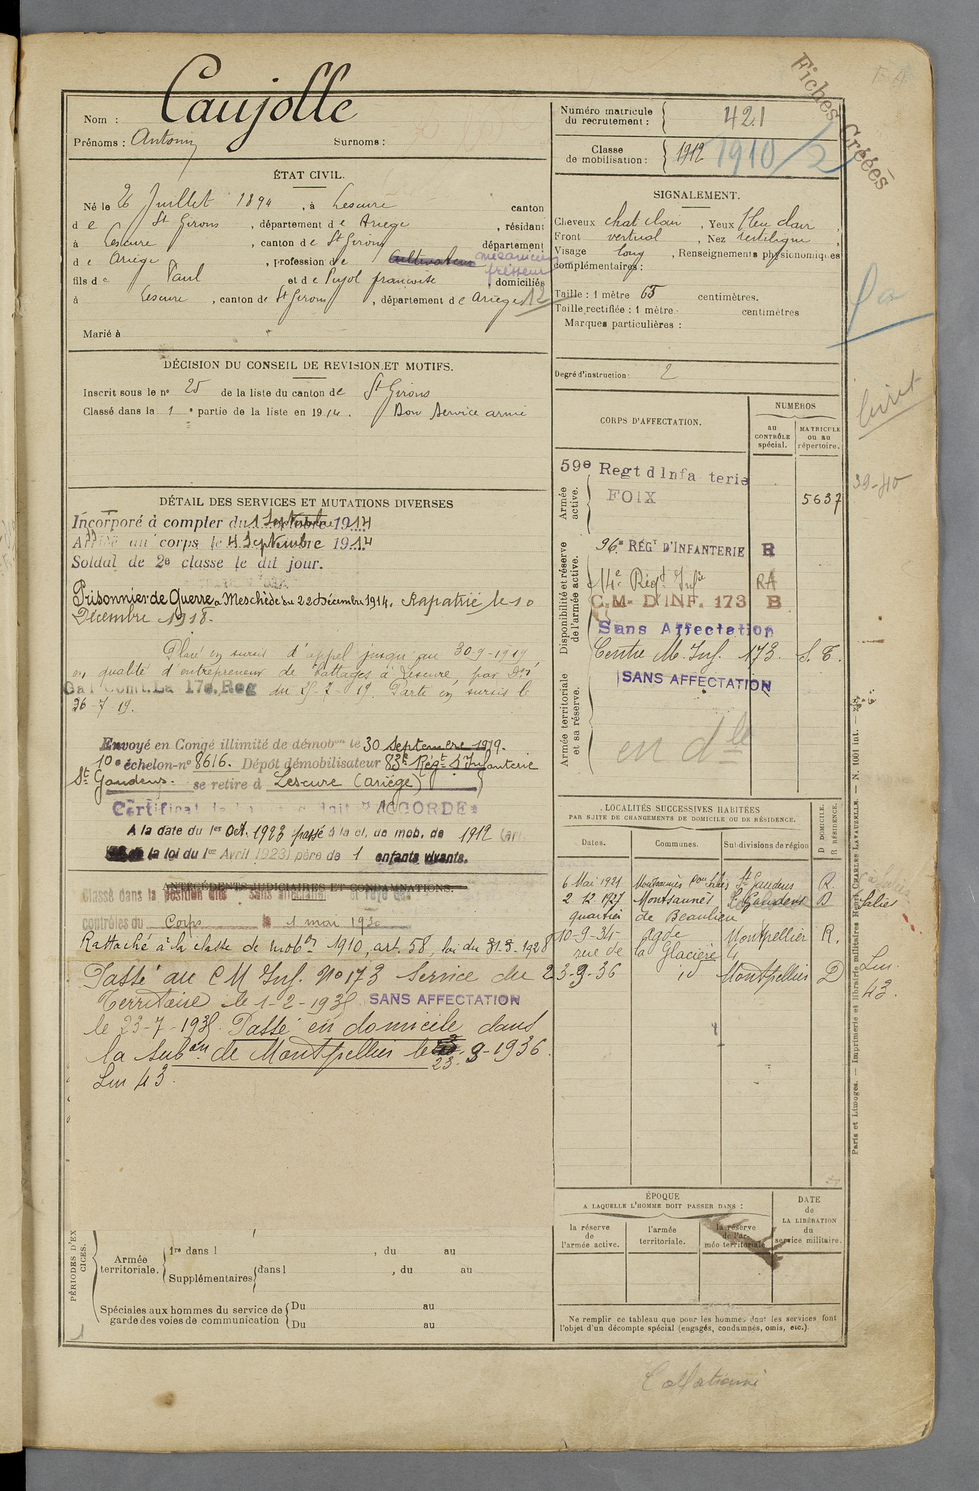 Fiches Créées
Nom : Caujolle
Prénoms : Antonin Surnoms :
Numéro matricule du recrutement : 421
Classe de mobilisation : 1912 1910/2
ÉTAT CIVIL.
Né le 26 Juillet 1894, à Lescure canton
de St Girons, département de Ariege, résidant
à Lescure, canton de St Girons département
de Ariege, profession de Cultivateur mecanicien
fils de Paul et de Pujol françoise domiciliés
à Lescure, canton de St Girons, département de Ariege 12
Marié à
SIGNALEMENT.
Cheveux chat clair, Yeux bleu clair
Front vertical, Nez rectiligne
Visage long, Renseignements physionomiques
complémentaires :
Taille : 1 mètre 65 centimètres.
Taille rectifiée : 1 mètre centimètres
Marques particulières :
Degré d'instruction : 2
DÉCISION DU CONSEIL DE REVISION ET MOTIFS.
Inscrit sous le n° 25 de la liste du canton de St Girons
Classé dans la 1e partie de la liste en 1914. Bon Service armé
DÉTAIL DES SERVICES ET MUTATIONS DIVERSES
Incorporé à compter du 1 Septembre 1914
Arrivé au corps le 4 Septembre 1914
Soldat de 2e classe le dit jour.
Prisonnier de Guerre à Meschède du 22 Décembre 1914. Rapatrié le 10
Décembre 1918.
Placé en sursis d'appel jusqu'au 30-9-1919
en qualité d'entrepreneur de battages à Lescure, par
Gal Comt. La 17e. Reg du 15-7-19. Parti en sursis le
26-7-19.
Envoyé en Congé illimité de démobon le 30 septembre 1919.
10e échelon-n° 8616. Dépôt démobilisateur 83e Régt d'Infanterie
St Gaudens. se retire à Lescure (Ariège)
Certificat de ACCORDÉ
A la date du 1er Oct. 1923 passé à la cl. de mob. de 1912
la loi du 1er Avril 1923) père de 1 enfants vivants.
ANTÉCÉDENTS JUDICIAIRES ET CONDAMNATIONS.
Classé dans la position dite sans affectation et rayé des
contrôles du Corps le 1 mai 1930
Rattaché à la classe de mobon 1910, art. 58, loi du 31-3-1928
Passé au C M Inf. N° 173 Service du
Territoire le 1-2-1935. SANS AFFECTATION
le 23-7-1935. Passé en domicile dans
la subon de Montpellier le 23-9-1936.
Lm 43.
CORPS D'AFFECTATION.
NUMÉROS
au CONTRÔLE spécial.
MATRICULE ou au répertoire.
Armée active.
59e Regt d Infanterie
FOIX 5637
Disponibilité et réserve de l'armée active.
96e RÉGt D'INFANTERIE R
14e Régt Infie RA
C.M. D'INF. 173 B
Sans Affectation
Centre M. Inf. 173. S. T.
SANS AFFECTATION
Armée territoriale et sa réserve.
en dle
LOCALITÉS SUCCESSIVES HABITÉES
PAR SUITE DE CHANGEMENTS DE DOMICILE OU DE RÉSIDENCE.
Dates. Communes. Subdivisions de région D DOMICILE. R RÉSIDENCE.
6 Mai 1921 St Gaudens R.
2-12-1927 Montsaunès St Gaudens D
quartier de Beaulieu
10-9-35 Agde Montpellier R.
rue de la Glacière 4
23-9-36 id Montpellier D
Salies
Lm
43.
39-40
Paris et Limoges. — Imprimerie et librairie militaires Henri CHARLES-LAVAUZELLE. — N. 1001 int. —
PÉRIODES D'EXERCICES.
Armée territoriale. 1re dans l , du au
Supplémentaires dans l , du au
Spéciales aux hommes du service de garde des voies de communication Du au
Du au
ÉPOQUE
A LAQUELLE L'HOMME DOIT PASSER DANS :
la réserve de l'armée active.
l'armée territoriale.
la réserve de l'armée territoriale
DATE de LA LIBÉRATION du service militaire.
Ne remplir ce tableau que pour les hommes dont les services font
l'objet d'un décompte spécial (engagés, condamnés, omis, etc.).